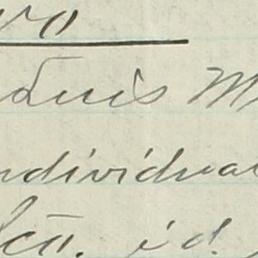 vo
Luis M
ndividua
cto. id.